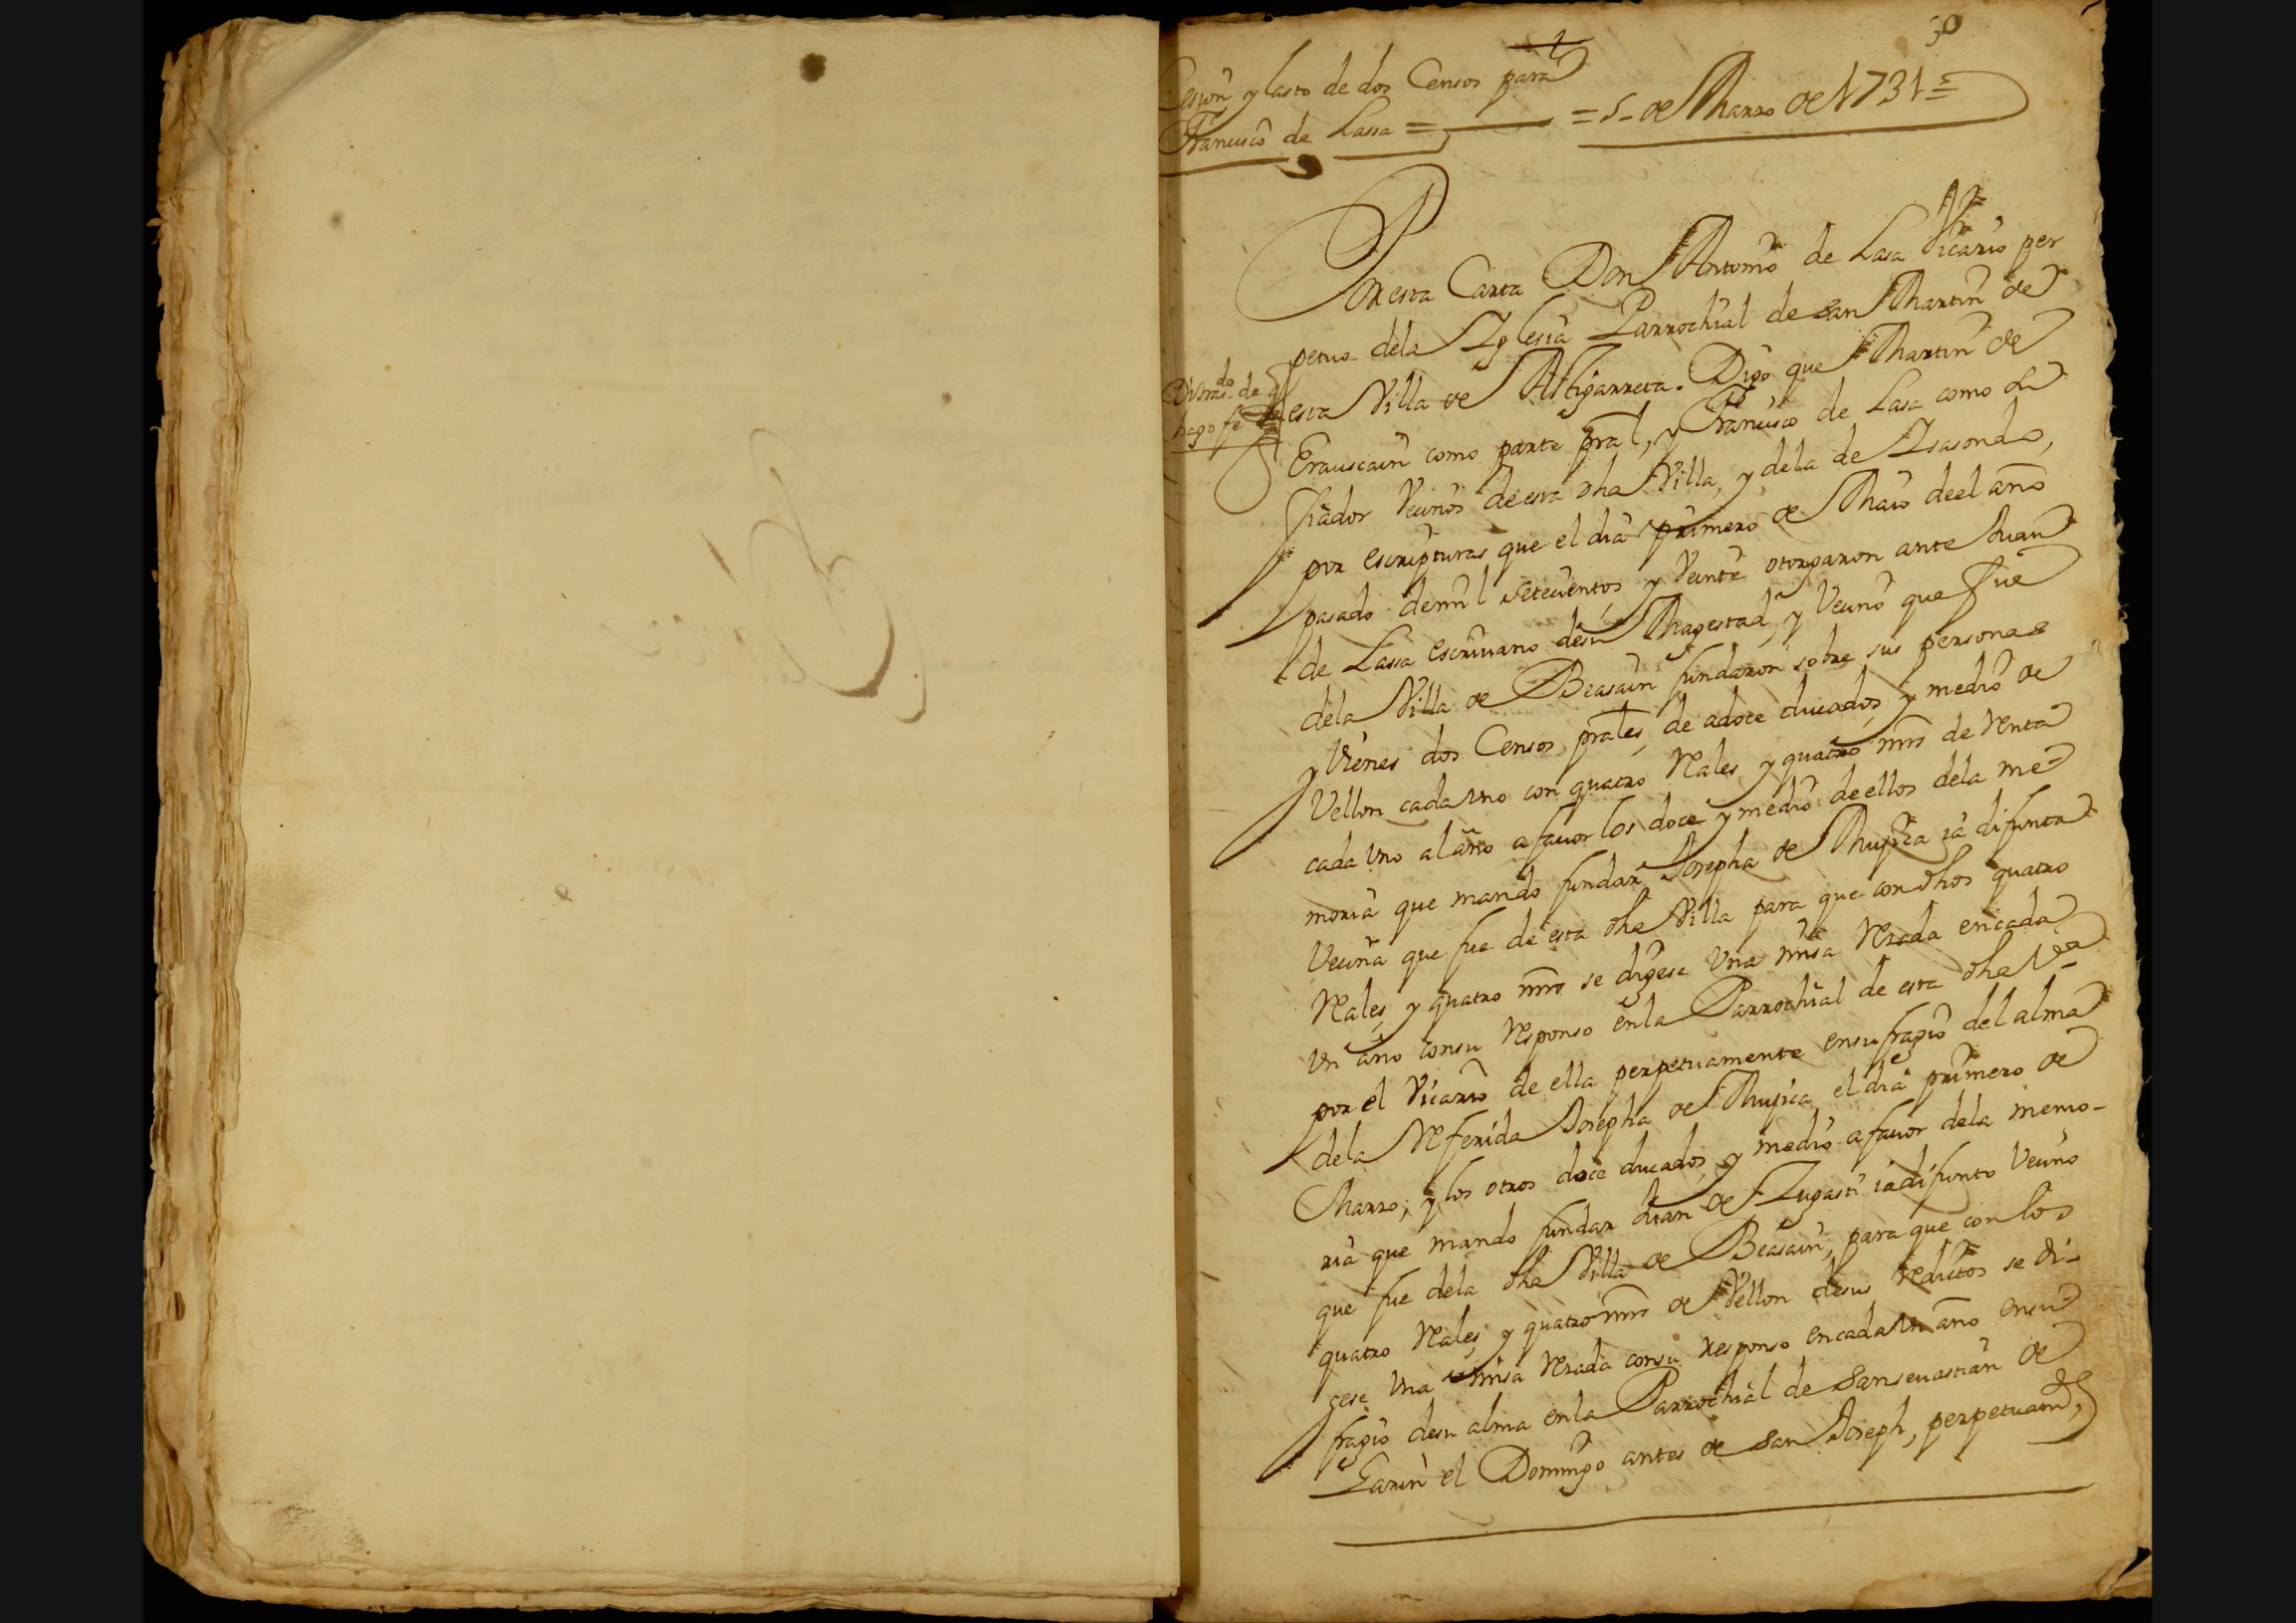 30
Cesion y lasto de dos Censos para
Francisco de Lassa = = 5 - de Marzo de 1731 =
Por esta Carta Don Antonio de Lasa Vicario per
petuo dela Yglesia Parrochial de san Martin de
esta Villa de Altzarreta. Digo que Martin de
Erauscain como parte pral, y Francisco de Lasa como su
fiador Vecinos de esta dha Villa, y dela de Isasondo,
por escripturas que el dia primero de Maio de el año
pasado de mil setecientos y Veinte otorgaron ante Juan
de Lassa escriuano desu Magestad, y Vecino que fue
dela Villa de Beasain fundaron sobre sus personas
y Vienes dos Censos prales, de adoce ducados y medio de
Vellon cada Vno con quatro Rales y quatro mrs de Renta
cada Vno al año a fauor los doce y medio de ellos dela me
moria que mando fundar Josepha de Mujica ia difunta
Vecina que fue de esta dha Villa para que con dhos quatro
Rales y quatro mrs se digese Vna misa Rezada en cada
Vn año consu Responso en la Parrochial de esta dha Va
por el Vicario de ella perpetuamente ensufragio del alma
dela Referida Josepha de Mujica el dia primero de
Marzo; y los otros doce ducados y medio a fauor dela memo-
ria que mando fundar Juan de Zugasti ia difunto Vecino
que fue dela dha Villa de Beasain, para que con los
quatro Rales y quatro mrs de Vellon desus Reditos se di-
gese Vna misa Rezada consu Responso encada Vn año ensu
fragio desu alma en la Parrochial de Sanseuastian de
Garin el Domingo antes de San Joseph, perpetuamte,
do
de q
hago fe